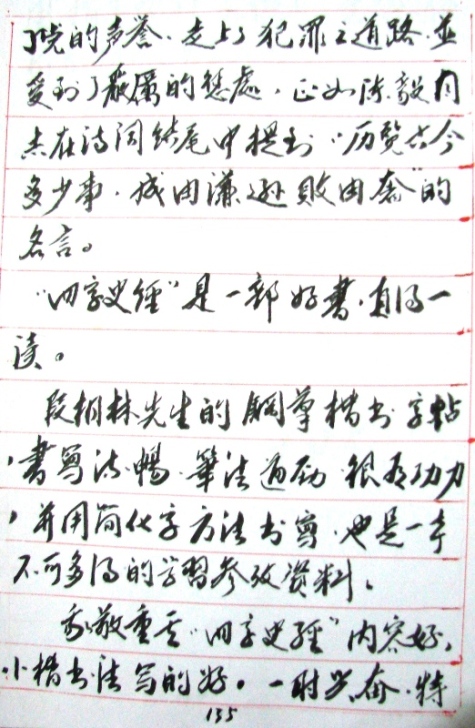 了党的声誉.走上了犯罪之道路.並
受到了严厲的惩處.正如陈毅同
志在诗词结尾中提到“历覽古今
多少事.成由谦逊败由奢”的
名言。
“四字史經”是一部好書.值得一
读。
段相林先生的鋼筆楷书字帖
,書寫流暢.筆法遒劲.很有功力
,并用简化字方法书寫.也是一本
不可多得的学習参攷资料.
我敬重其“四字史經”内容好,
小楷书法写的好。一时兴奋.特
135